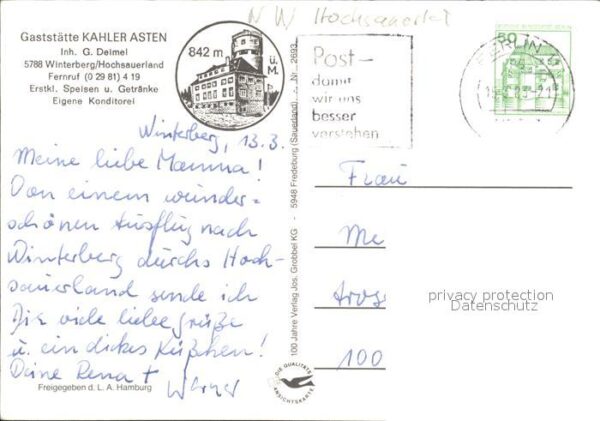 NW Hochsauerld
Gaststätte KAHLER ASTEN
Inh. G. Deimel
5788 Winterberg/Hochsauerland
Fernruf (0 29 81) 4 19
Erstkl. Speisen u. Getränke
Eigene Konditorei
842 m
ü.
M.
Post-
damit
wir uns
besser
verstehen
BERLIN
Winterberg, 13.3.
Meine liebe Mamma!
Von einem wunder=
schönen Ausflug nach
Winterberg durchs Hoch-
sauerland sende ich
Dir viele liebe Grüße
u. ein dickes Küßchen!
Deine Rena +
Werner
Freigegeben d. L. A. Hamburg
100 Jahre Verlag Jos. Grobbel KG - 5948 Fredeburg (Sauerland)
DIE QUALITÄTS
ANSICHTSKARTE
Frau
Me
100
privacy protection
Datenschutz